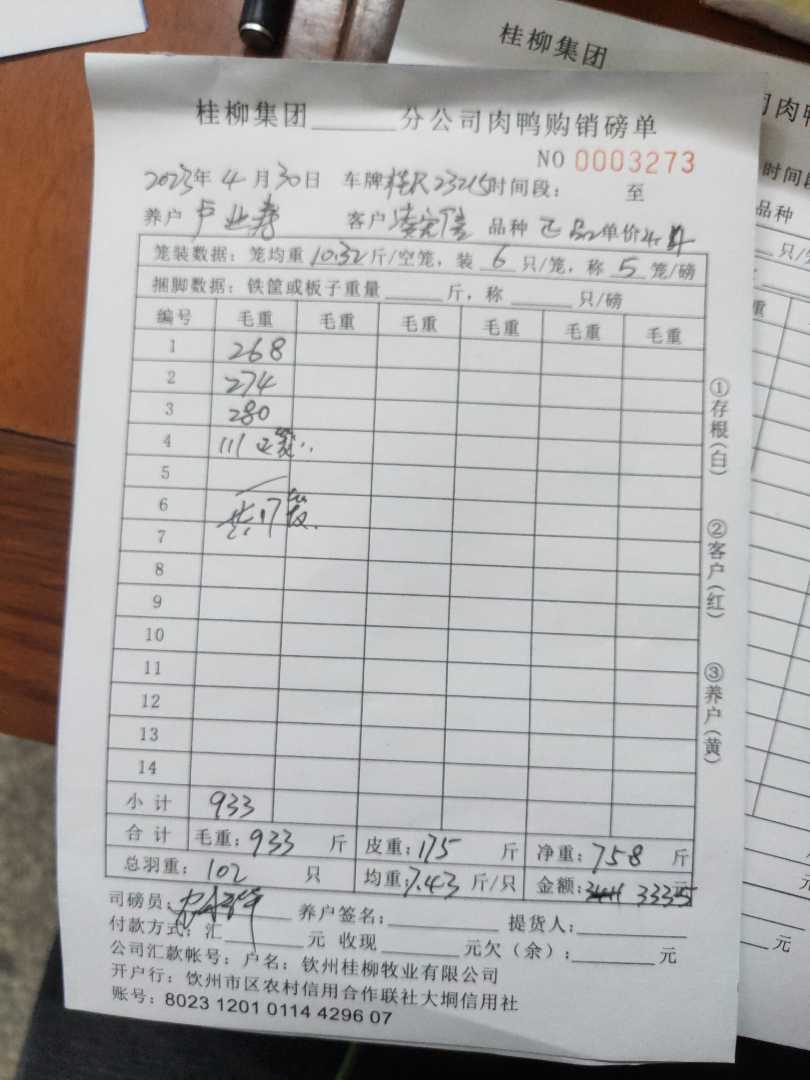 桂柳集团
桂柳集团______分公司肉鸭购销磅单
NO 0003273
2023年 4 月 30日 车牌桂R23215时间段: 至
养户 卢业寿 客户 品种 正品 单价4.4
笼装数据：笼均重 10.32 斤/空笼，装 6 只/笼，称 5 笼/磅
捆脚数据：铁筐或板子重量______斤，称______只/磅
编号 毛重 毛重 毛重 毛重 毛重 毛重
1 268
2 274
3 280
4 111 2笼
5
6 共17笼
7
8
9
10
11
12
13
14
小计 933
合计 毛重：933 斤 皮重：175 斤 净重：758 斤
总羽重：102 只 均重：7.43 斤/只 金额： 3335 元
司磅员： 养户签名：______ 提货人：______
付款方式：汇______元 收现______元欠（余）：______元
公司汇款帐号：户名：钦州桂柳牧业有限公司
开户行：钦州市区农村信用合作联社大垌信用社
账号：8023 1201 0114 4296 07
①存根(白)
②客户(红)
③养户(黄)
司肉鸭
时间段
品种
只/笼
只/
重
斤
元
元